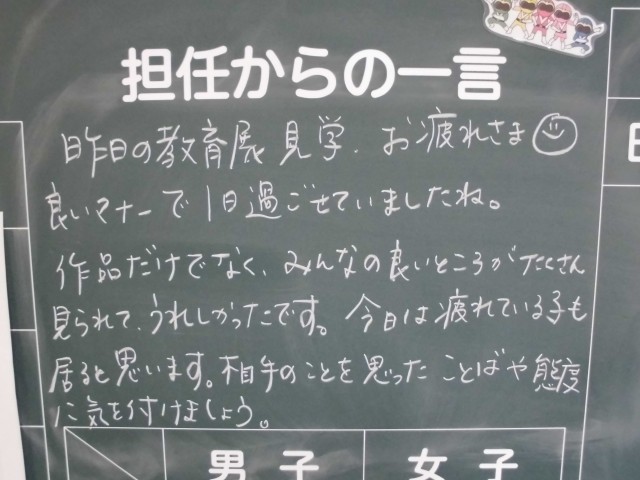 担任からの一言
昨日の教育展見学、お疲れさま
良いマナーで1日過ごせていましたね。
作品だけでなく、みんなの良いところがたくさん
見られて、うれしかったです。今日は疲れている子も
居ると思います。相手のことを思ったことばや態度
に気を付けましょう。
男子
女子